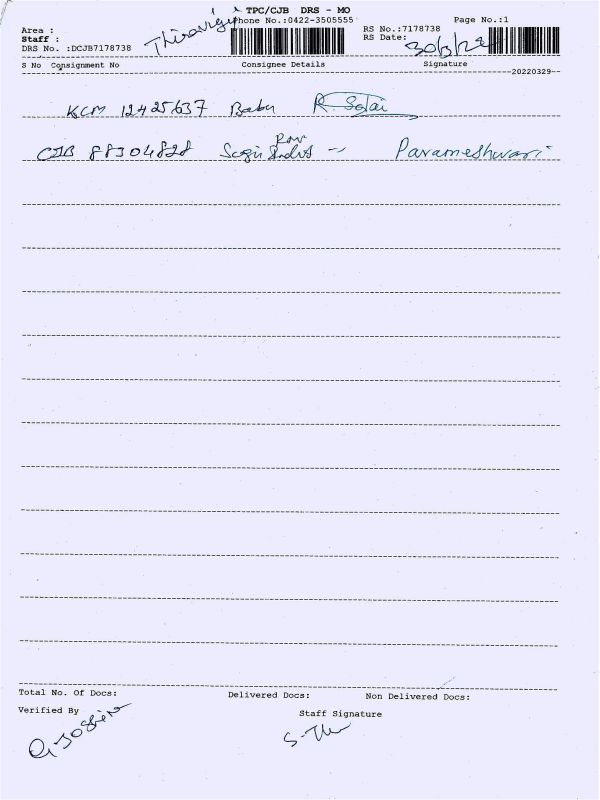 TPC/CJB DRS - MO
Phone No.:0422-3505555
Page No.:1
Area :
Staff :
DRS No. :DCJB7178738
RS No.:7178738
RS Date:
30/3/22
S No Consignment No Consignee Details Signature
20220329
KCM 12425637 Babu R. Solai
CJB 88304828 Parameshwari
Total No. Of Docs: Delivered Docs: Non Delivered Docs:
Verified By
Staff Signature